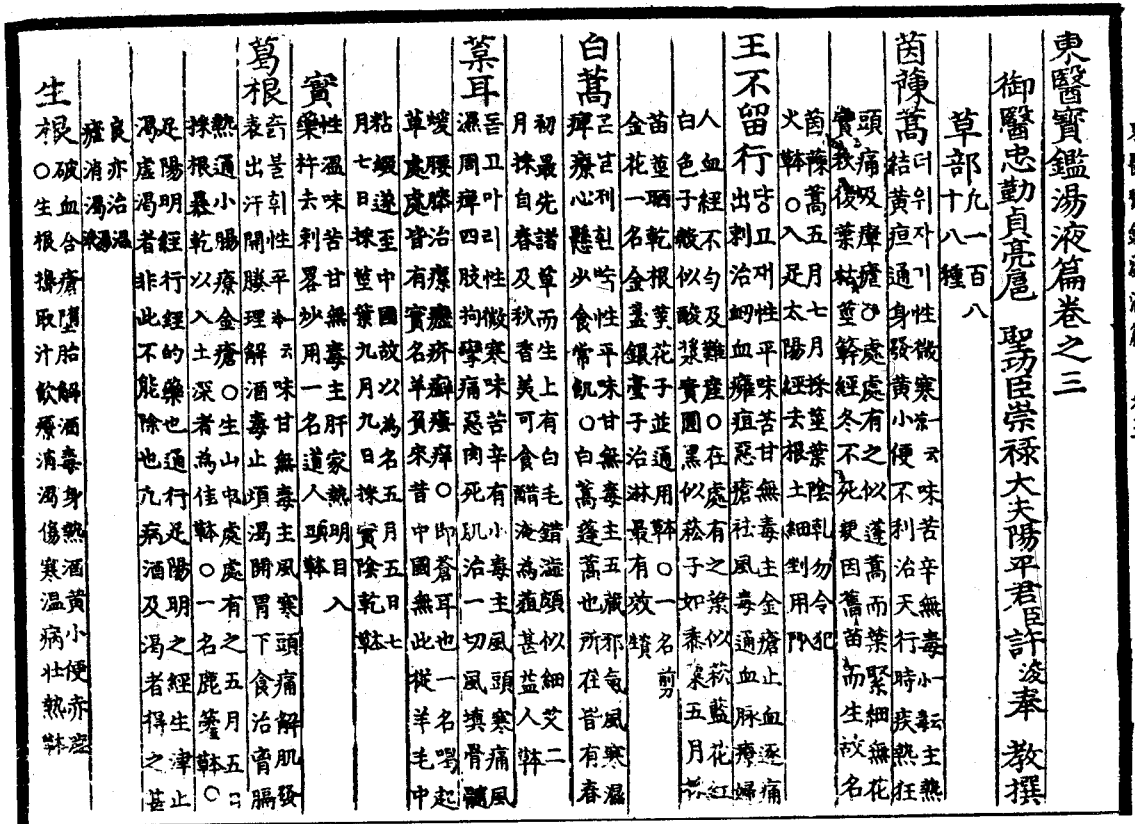 東醫寶鑑湯液篇卷之三
御醫忠勤貞亮扈 聖功臣崇祿大夫陽平君臣許浚奉 教撰
草部凡一百八十八種
茵蔯蒿더위자기性微寒一云冷味苦辛無毒一云小毒主熱
結黃疸通身發黃小便不利治天行時疾熱狂
頭痛及瘴瘧○處處有之似蓬蒿而葉緊細無花
實秋後葉枯莖簳經冬不死更因舊苗而生故名
茵蔯蒿五月七月採莖葉陰乾勿令犯
火本草○入足太陽經去根土細剉用入門
王不留行댱고재性平味苦甘無毒主金瘡止血逐痛
出刺治衄血癰疽惡瘡祛風毒通血脉療婦
人血經不勻及難産○在處有之葉似菘藍花紅
白色子殼似酸漿實圓黑似菘子如黍粟五月
苗莖晒乾根莖花子並通用本草○一名剪
金花一名金盞銀臺子治淋最有效
白蒿흰性平味甘無毒主五藏邪氣風寒濕
痺療心懸少食常飢○白蒿蓬蒿也所在皆有春
初最先諸草而生上有白毛錯澁頗似細艾二
月採自春及秋香美可食醋淹爲葅甚益人本草
葈耳돗고마리性微寒味苦辛有小毒主風頭寒痛風
濕周痺四肢拘攣痛惡肉死肌治一切風塡骨髓
煖腰膝治瘰癧疥癬瘙痒○卽蒼耳也一名喝起
草處處皆有實名羊負來昔中國無此從羊毛中
粘綴遂至中國故以爲名五月五日七
月七日採莖葉九月九日採實陰乾本草
實性溫味苦甘無毒主肝家熱明目入
藥杵去刺略炒用一名道人頭本草
葛根츩불휘性平一云冷味甘無毒主風寒頭痛解肌發
表出汗開腠理解酒毒止煩渴開胃下食治胷膈
熱通小腸療金瘡○生山中處處有之五月五日
採根暴乾以入土深者爲佳本草○一名鹿藿本草○
足陽明經行經的藥也通行足陽明之經生津止
渴虛渴者非此不能除也凡病酒及渴者得之甚
良亦治溫
瘧消渴湯液
生根○破血合瘡墮胎解酒毒身熱酒黃小便赤澁
○生根擣取汁飮療消渴傷寒溫病壯熱本草